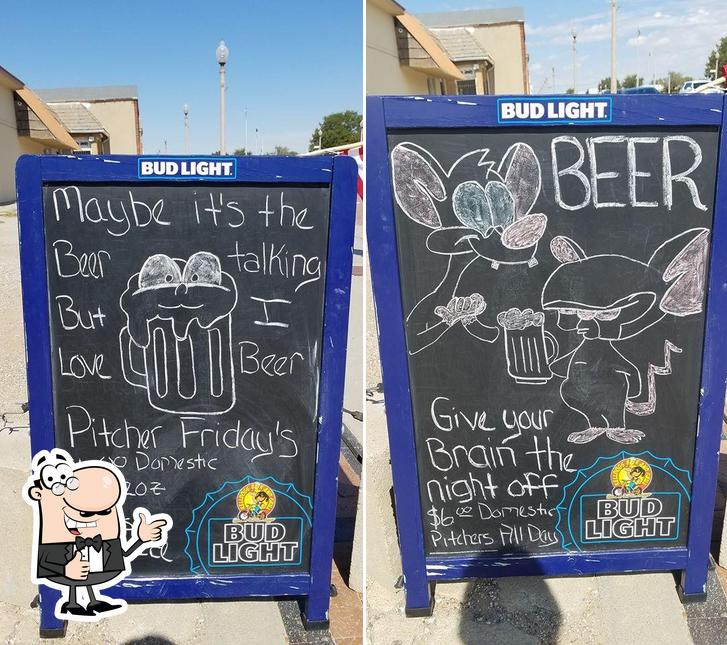 BUD LIGHT
Maybe it's the
Beer talking
But I
Love Beer
Pitcher Friday's
Domestic
oz
BUD
LIGHT
BUD LIGHT
BEER
Give your
Brain the
night off
$6 00 Domestic
Pitchers All Day
BUD
LIGHT